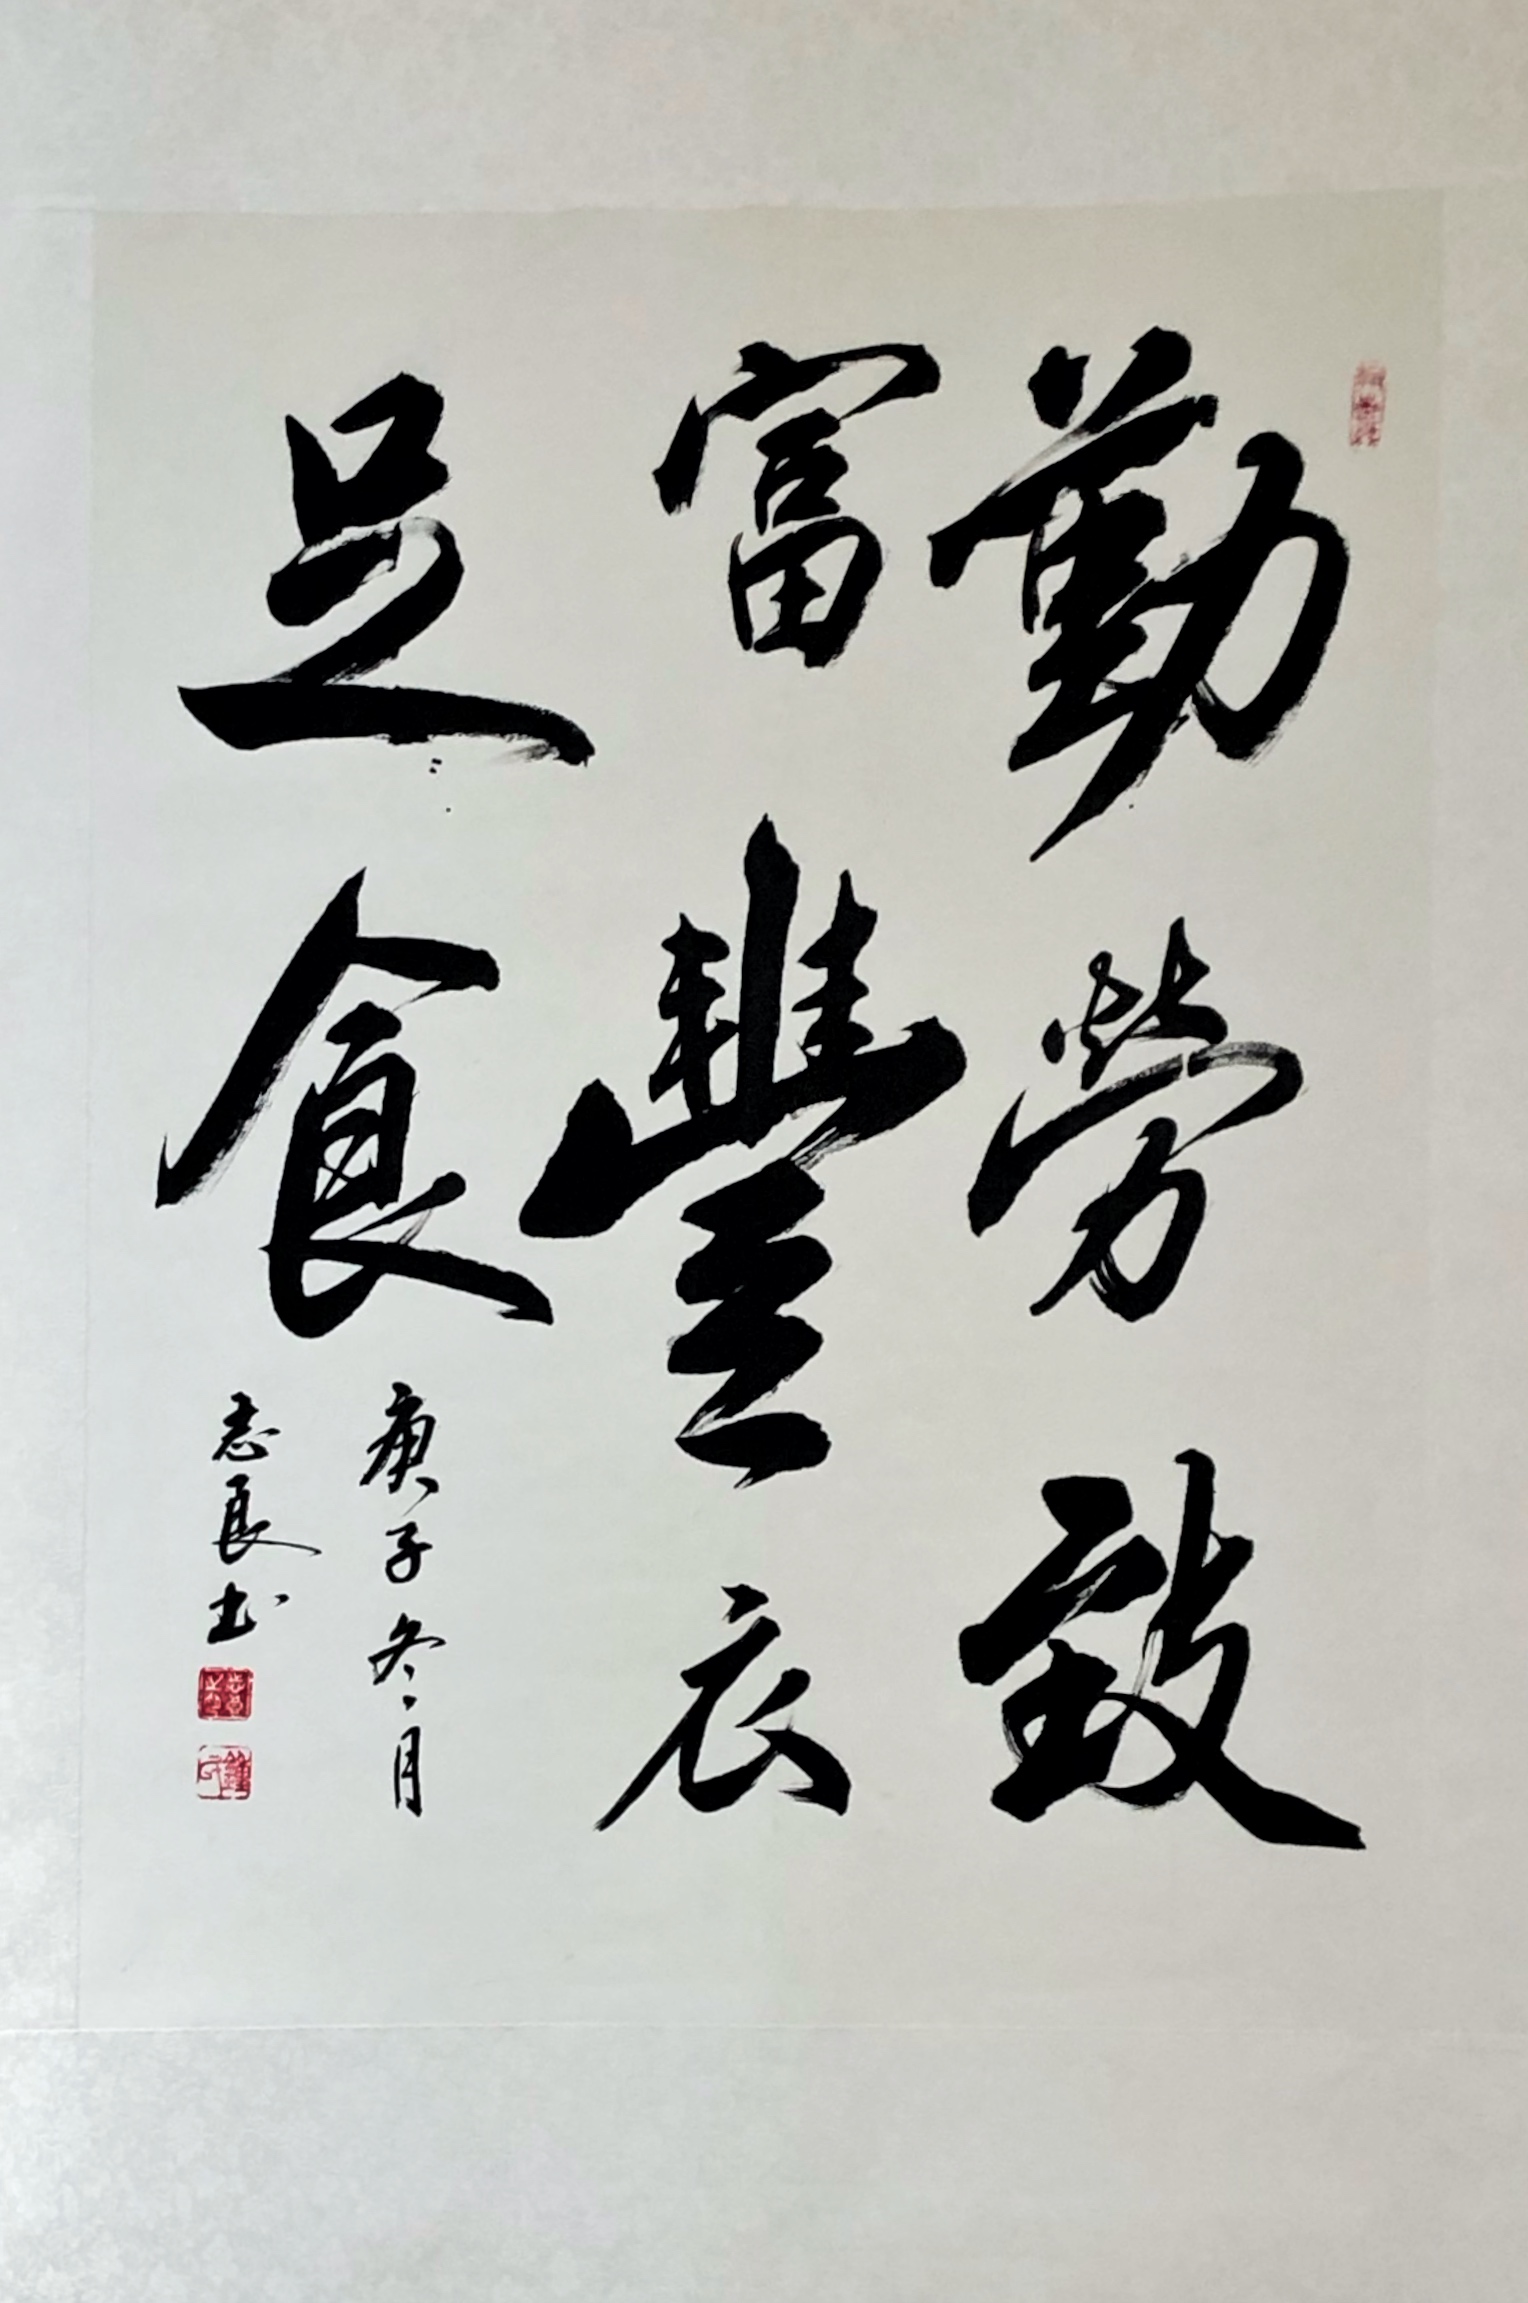 勤勞致
富豐衣
足食
庚子冬月
志良书